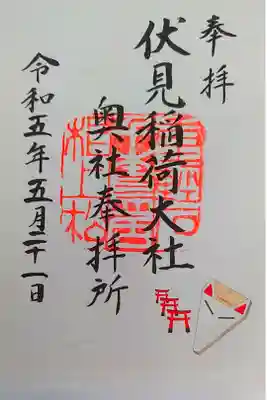 奉拝
伏見稲荷大社
奥社奉拝所
令和五年五月二十一日